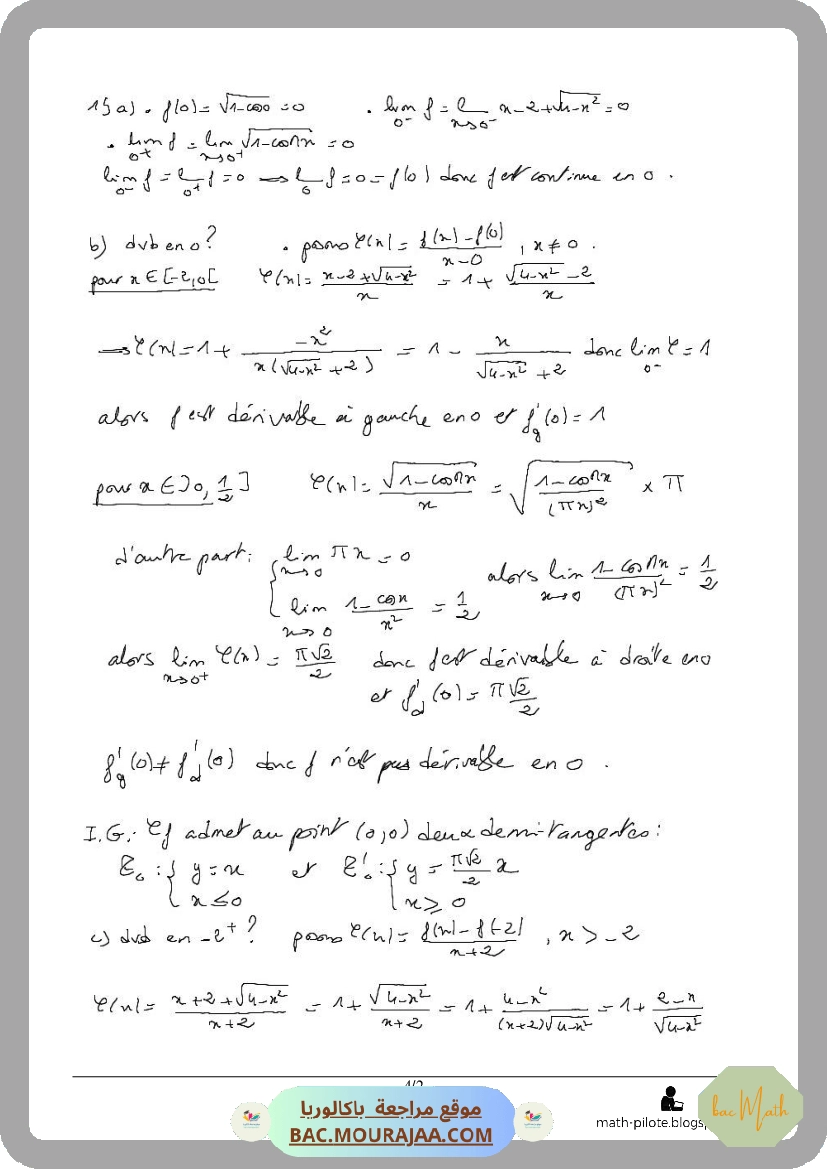 1) a) • f(0) = √(1-cos0) = 0 • lim_{0⁻} f = lim_{x→0⁻} x-2+√(4-x²) = 0
• lim_{0⁺} f = lim_{x→0⁺} √(1-cosπx) = 0
lim_{0⁻} f = lim_{0⁺} f = 0 → lim_{0} f = 0 = f(0) donc f est continue en 0 .
b) dvb en 0 ? • posons φ(x) = (f(x) - f(0))/(x-0) , x ≠ 0 .
pour x ∈ [-2,0[ φ(x) = (x-2+√(4-x²))/x = 1 + (√(4-x²) -2)/x
→ φ(x) = 1 + (-x²)/(x(√(4-x²) +2)) = 1 - x/(√(4-x²) +2) donc lim_{0⁻} φ = 1
alors f est dérivable à gauche en 0 et f'g(0) = 1
pour x ∈ ]0, 1/2] φ(x) = √(1-cosπx)/x = √((1-cosπx)/(πx)²) × π
d'autre part : { lim_{x→0} πx = 0 alors lim_{x→0} (1-cosπx)/(πx)² = 1/2
lim_{x→0} (1-cosx)/x² = 1/2
alors lim_{x→0⁺} φ(x) = π√2/2 donc f est dérivable à droite en 0
et f'd(0) = π√2/2
f'g(0) ≠ f'd(0) donc f n'est pas dérivable en 0 .
I.G.: ζf admet au point (0,0) deux demi-tangentes :
T₀ : { y = x et T'₀ : { y = π√2/2 x
x ≤ 0 x ≥ 0
c) dvb en -2⁺ ? posons φ(x) = (f(x) - f(-2))/(x+2) , x > -2
φ(x) = (x+2+√(4-x²))/(x+2) = 1 + √(4-x²)/(x+2) = 1 + (4-x²)/((x+2)√(4-x²)) = 1 + (2-x)/√(4-x²)
موقع مراجعة باكالوريا
BAC.MOURAJAA.COM
math-pilote.blogsp
bac Math